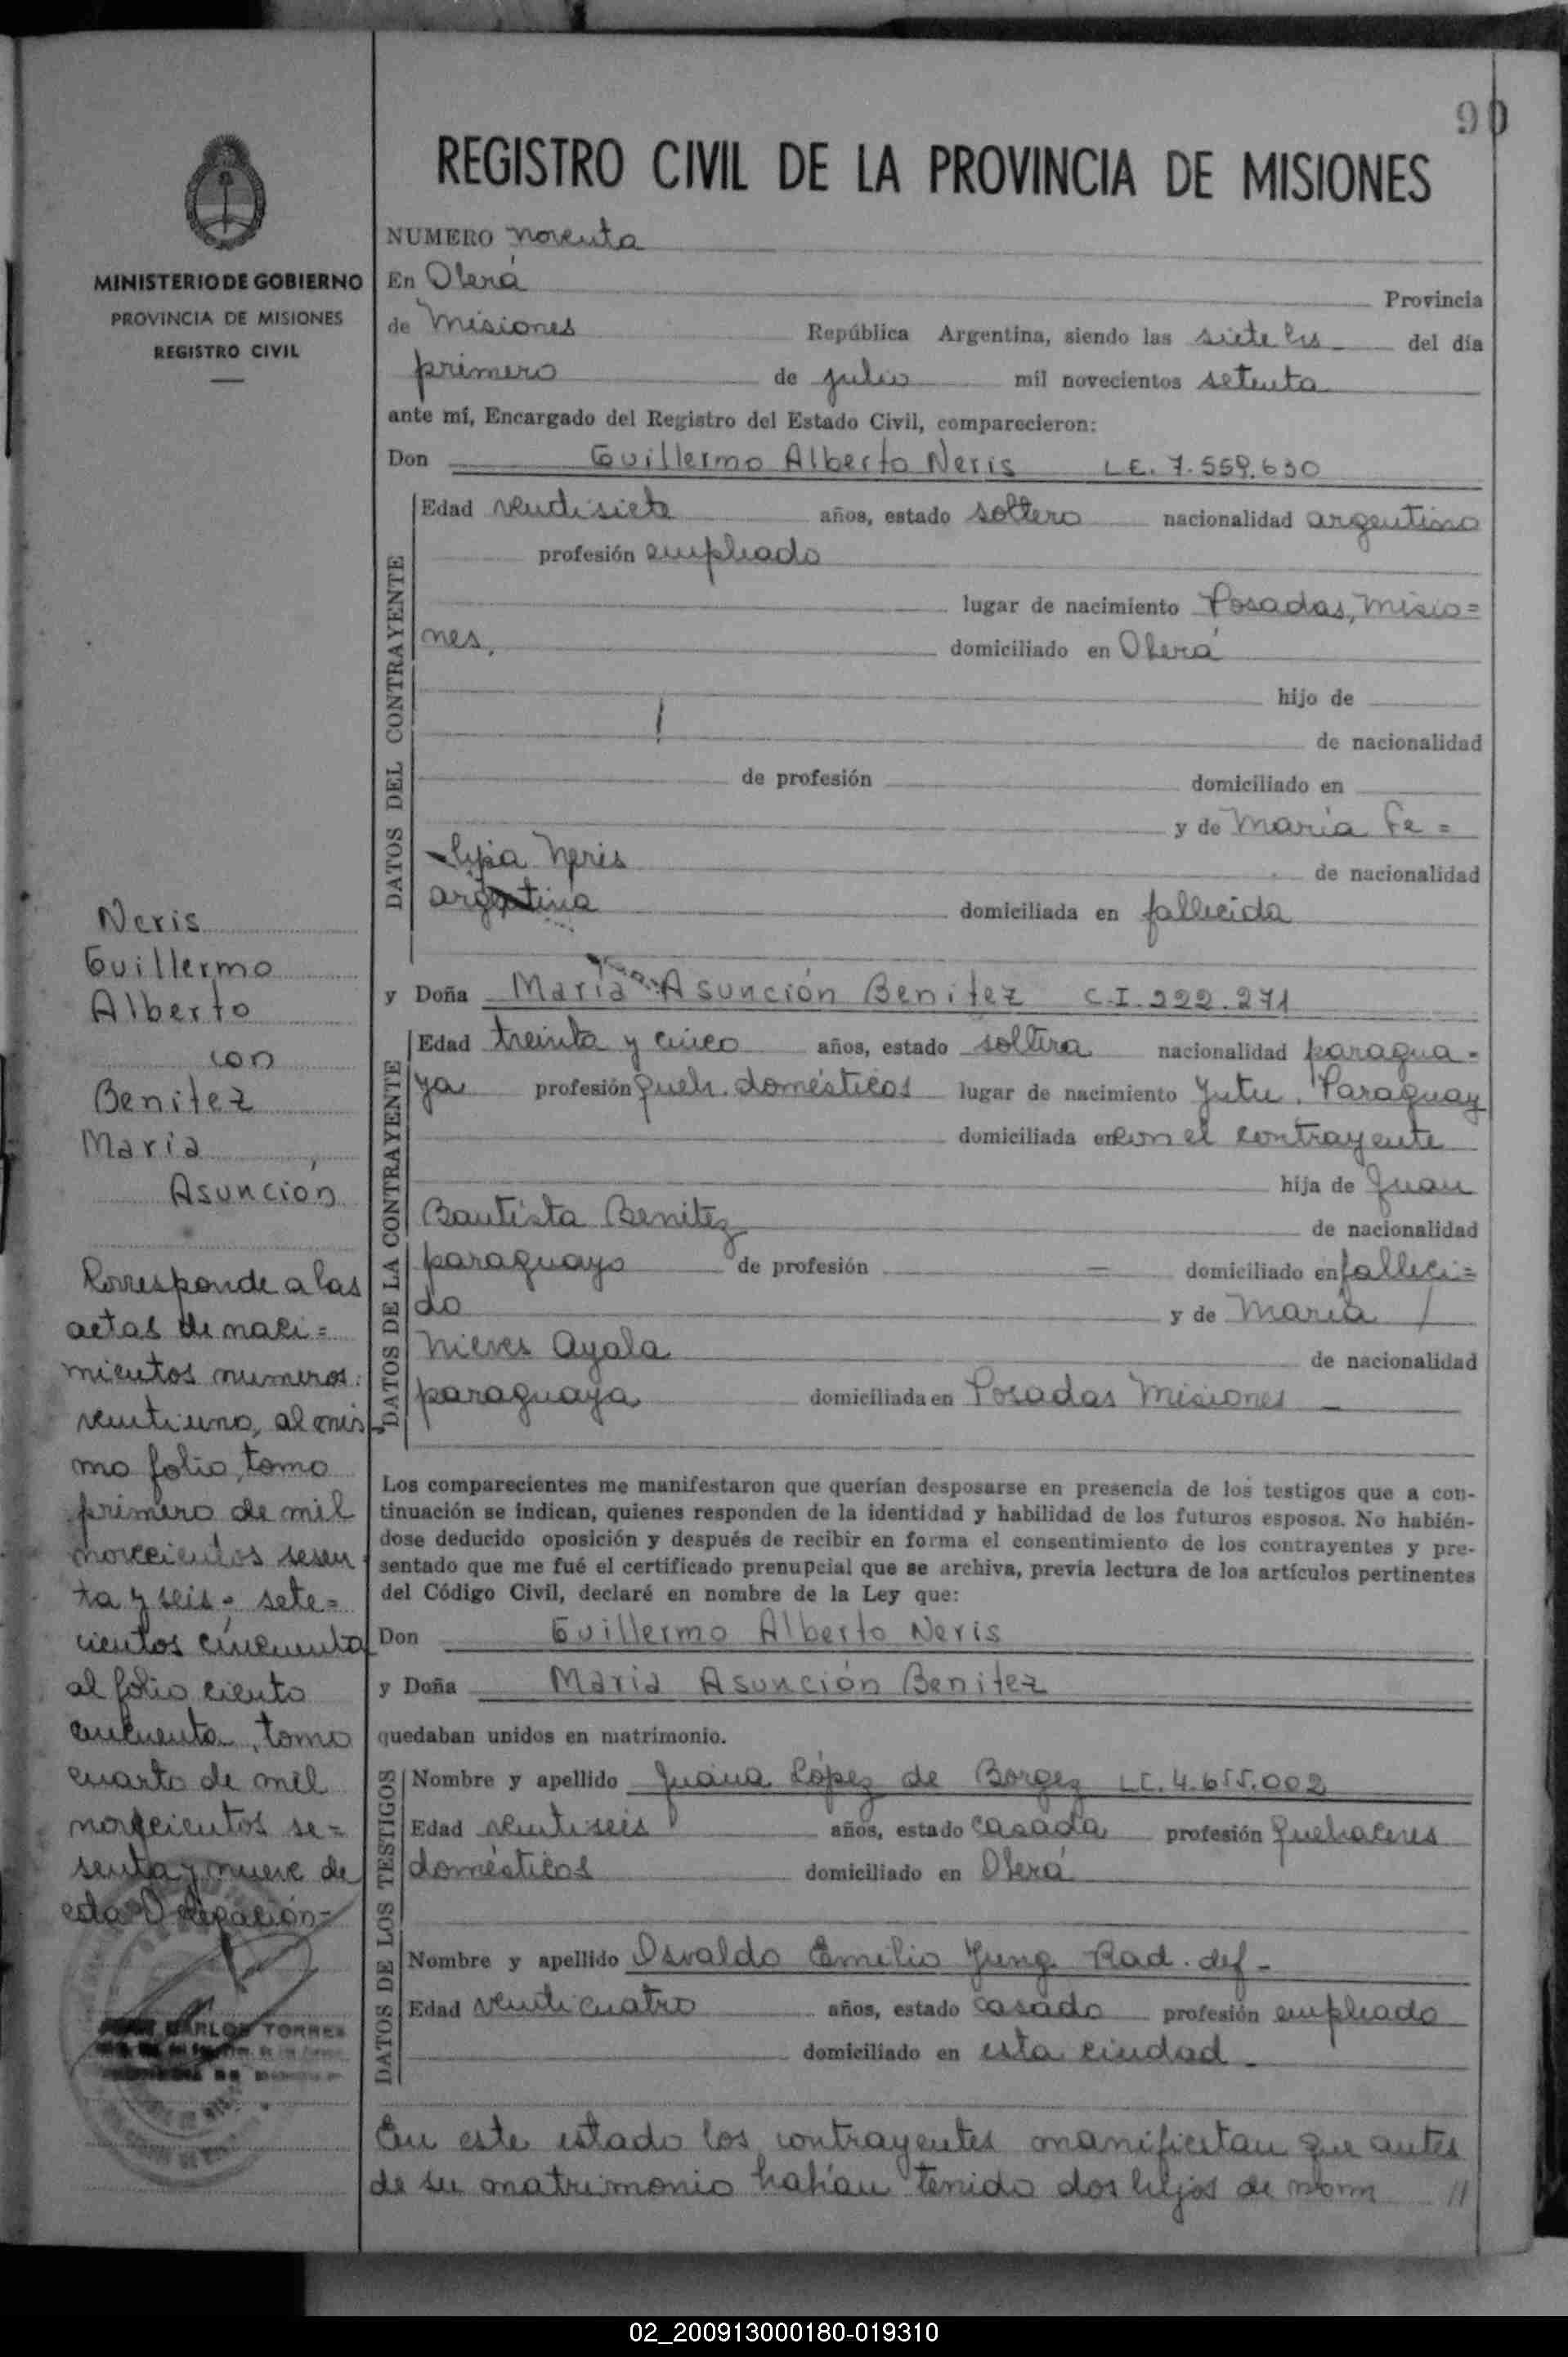 90
REGISTRO CIVIL DE LA PROVINCIA DE MISIONES
MINISTERIO DE GOBIERNO
PROVINCIA DE MISIONES
REGISTRO CIVIL
NUMERO noventa
En Oberá Provincia
de Misiones República Argentina, siendo las siete hs del día
primero de julio mil novecientos setenta
ante mí, Encargado del Registro del Estado Civil, comparecieron:
Don Guillermo Alberto Neris L.E. 7.559.630
DATOS DEL CONTRAYENTE
Edad veintisiete años, estado soltero nacionalidad argentino
profesión empleado
lugar de nacimiento Posadas, Misio=
nes, domiciliado en Oberá
hijo de
de nacionalidad
de profesión domiciliado en
y de María Fe=
lysa Neris de nacionalidad
argentina domiciliada en fallecida
y Doña María Asunción Benitez C.I. 222.271
DATOS DE LA CONTRAYENTE
Edad treinta y cinco años, estado soltera nacionalidad paragua-
ya profesión queh. domésticos lugar de nacimiento Yutu, Paraguay
domiciliada en con el contrayente
hija de Juan
Bautista Benitez de nacionalidad
paraguayo de profesión = domiciliado en falleci=
do y de María
Nieves Ayala de nacionalidad
paraguaya domiciliada en Posadas Misiones
Los comparecientes me manifestaron que querían desposarse en presencia de los testigos que a con-
tinuación se indican, quienes responden de la identidad y habilidad de los futuros esposos. No habién-
dose deducido oposición y después de recibir en forma el consentimiento de los contrayentes y pre-
sentado que me fué el certificado prenupcial que se archiva, previa lectura de los artículos pertinentes
del Código Civil, declaré en nombre de la Ley que:
Don Guillermo Alberto Neris
y Doña María Asunción Benitez
quedaban unidos en matrimonio.
DATOS DE LOS TESTIGOS
Nombre y apellido Juana López de Borgez L.C. 4.655.002
Edad veintiseis años, estado casada profesión quehaceres
domésticos domiciliado en Oberá
Nombre y apellido Osvaldo Emilio Jung Rad. def-
Edad veinticuatro años, estado casado profesión empleado
domiciliado en esta ciudad
En este estado los contrayentes manifiestan que antes
de su matrimonio habían tenido dos hijos de nom //
Neris
Guillermo
Alberto
con
Benitez
María
Asunción
Corresponde a las
actas de naci=
mientos numeros:
veintiuno, al mis
mo folio, tomo
primero de mil
novecientos sesen
ta y seis - sete=
cientos cincuenta
al folio ciento
cincuenta, tomo
cuarto de mil
novecientos se=
senta y nueve de
esta Delegación=
CARLOS TORRES
02_200913000180-019310